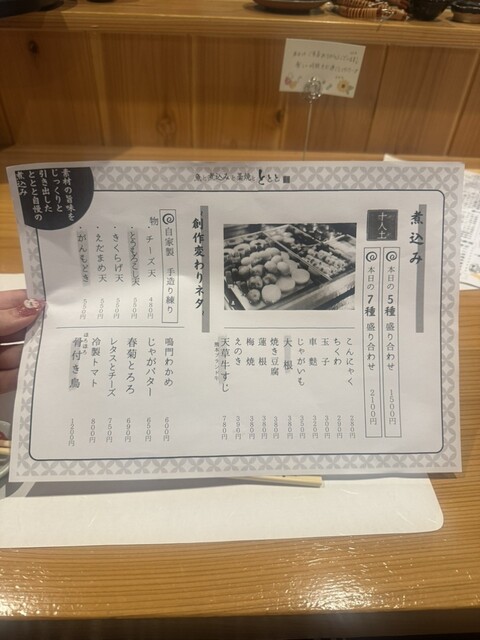 魚と煮込みと釜焼と ととと
煮込み
十八士
本日の5種盛り合わせ 1500円
本日の7種盛り合わせ 2100円
こんにゃく 280円
ちくわ 290円
玉子 300円
車麩 320円
じゃがいも 350円
大根 380円
焼き豆腐 380円
蓮根 380円
梅焼 380円
えのき 390円
天草牛すじ 780円
創作変わりネタ
自家製 手造り練り物
・チーズ天 480円
・とうもろこし天 550円
・きくらげ天 550円
・えだまめ天 550円
・がんもどき 550円
鳴門わかめ 600円
じゃがバター 650円
春菊とろろ 690円
レタスとチーズ 750円
冷製トマト 800円
ほろほろ
骨付き鳥 1200円
素材の旨味を
じっくりと
引き出した
ととと自慢の
煮込み